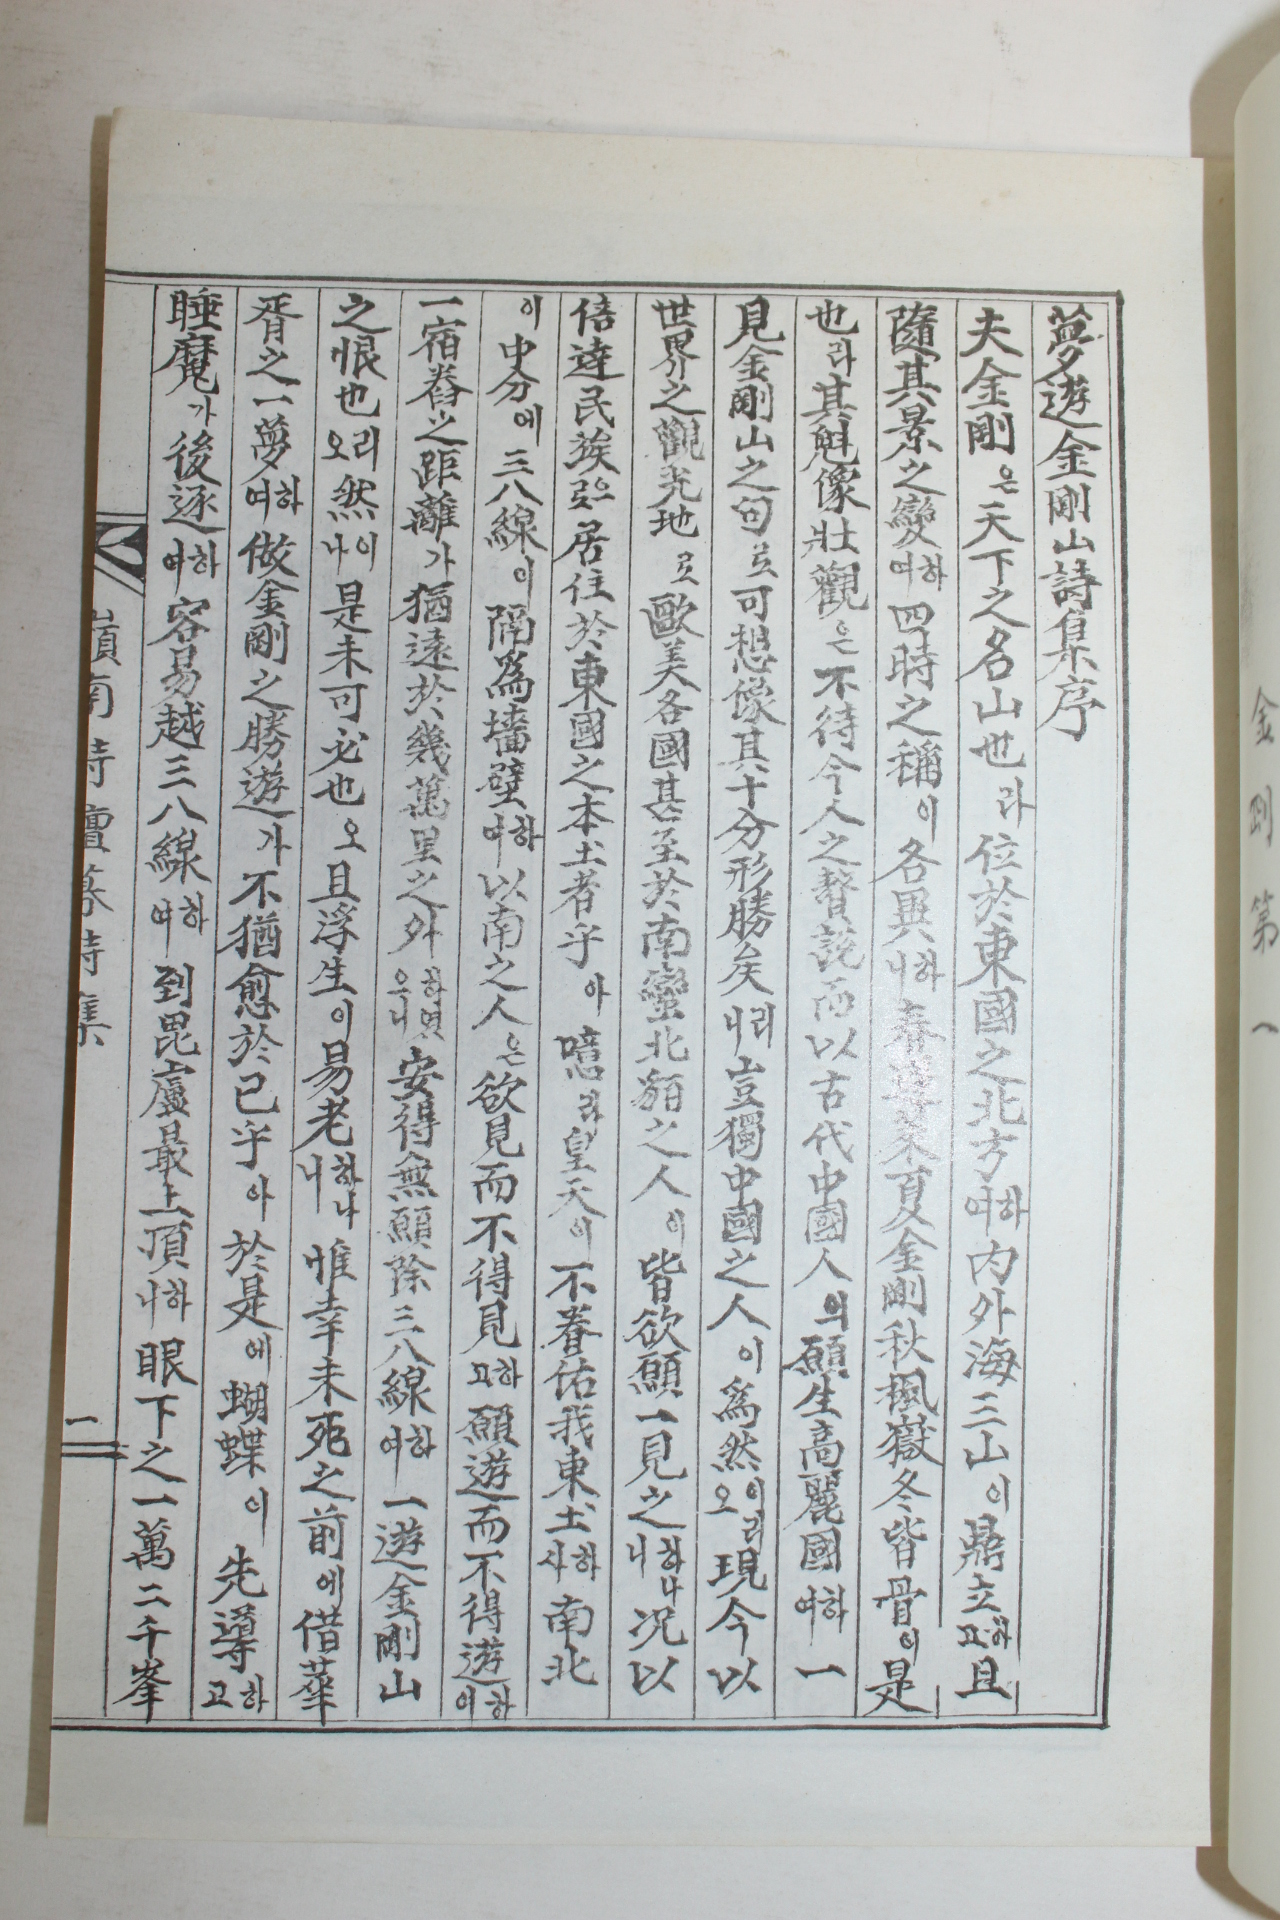 夢遊金剛山詩集序
夫金剛은天下之名山也라位於東國之北方하여內外海三山이鼎立하고且
隨其景之變하여四時之稱이各異하니春 夏金剛秋楓嶽冬皆骨이是
也라其魁像壯觀은不待今人之贅說而以古代中國人의願生高麗國하여一
見金剛山之句로可想像其十分形勝矣리니豈獨中國之人이爲然이리오現今以
世界之觀光地로歐美各國甚至於南蠻北貊之人이皆欲願一見之하나니况以
倍達民族으로居住於東國之本土者乎아噫라皇天이不眷佑我東土하사南北
이中分에三八線이隔爲墻壁하여以南之人은欲見而不得見하고願遊而不得遊하이
一宿舂之距離가猶遠於幾萬里之外하였으니安得無願除三八線하여一遊金剛山
之恨也리오然이나是未可必也오且浮生이易老하나니惟幸未死之前에借華
胥之一夢하여做金剛之勝遊가不猶愈於已乎아於是에蝴蝶이先導하고
睡魔가後逐하여容易越三八線하여到毘盧最上頂하니眼下之一萬二千峯
嶺南詩壇募詩集
一
金剛第一